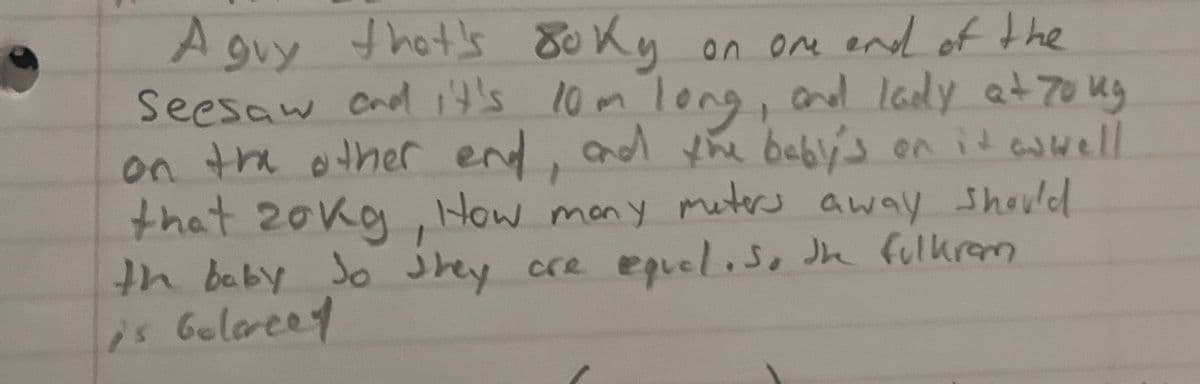 A guy that's 80Kg on one end of the
seesaw and it's 10m long, and lady at 70 kg
on the other end, and the baby's on it aswell
that 20Kg, How many meters away should
th baby so they are equal. So the fulkrem
is